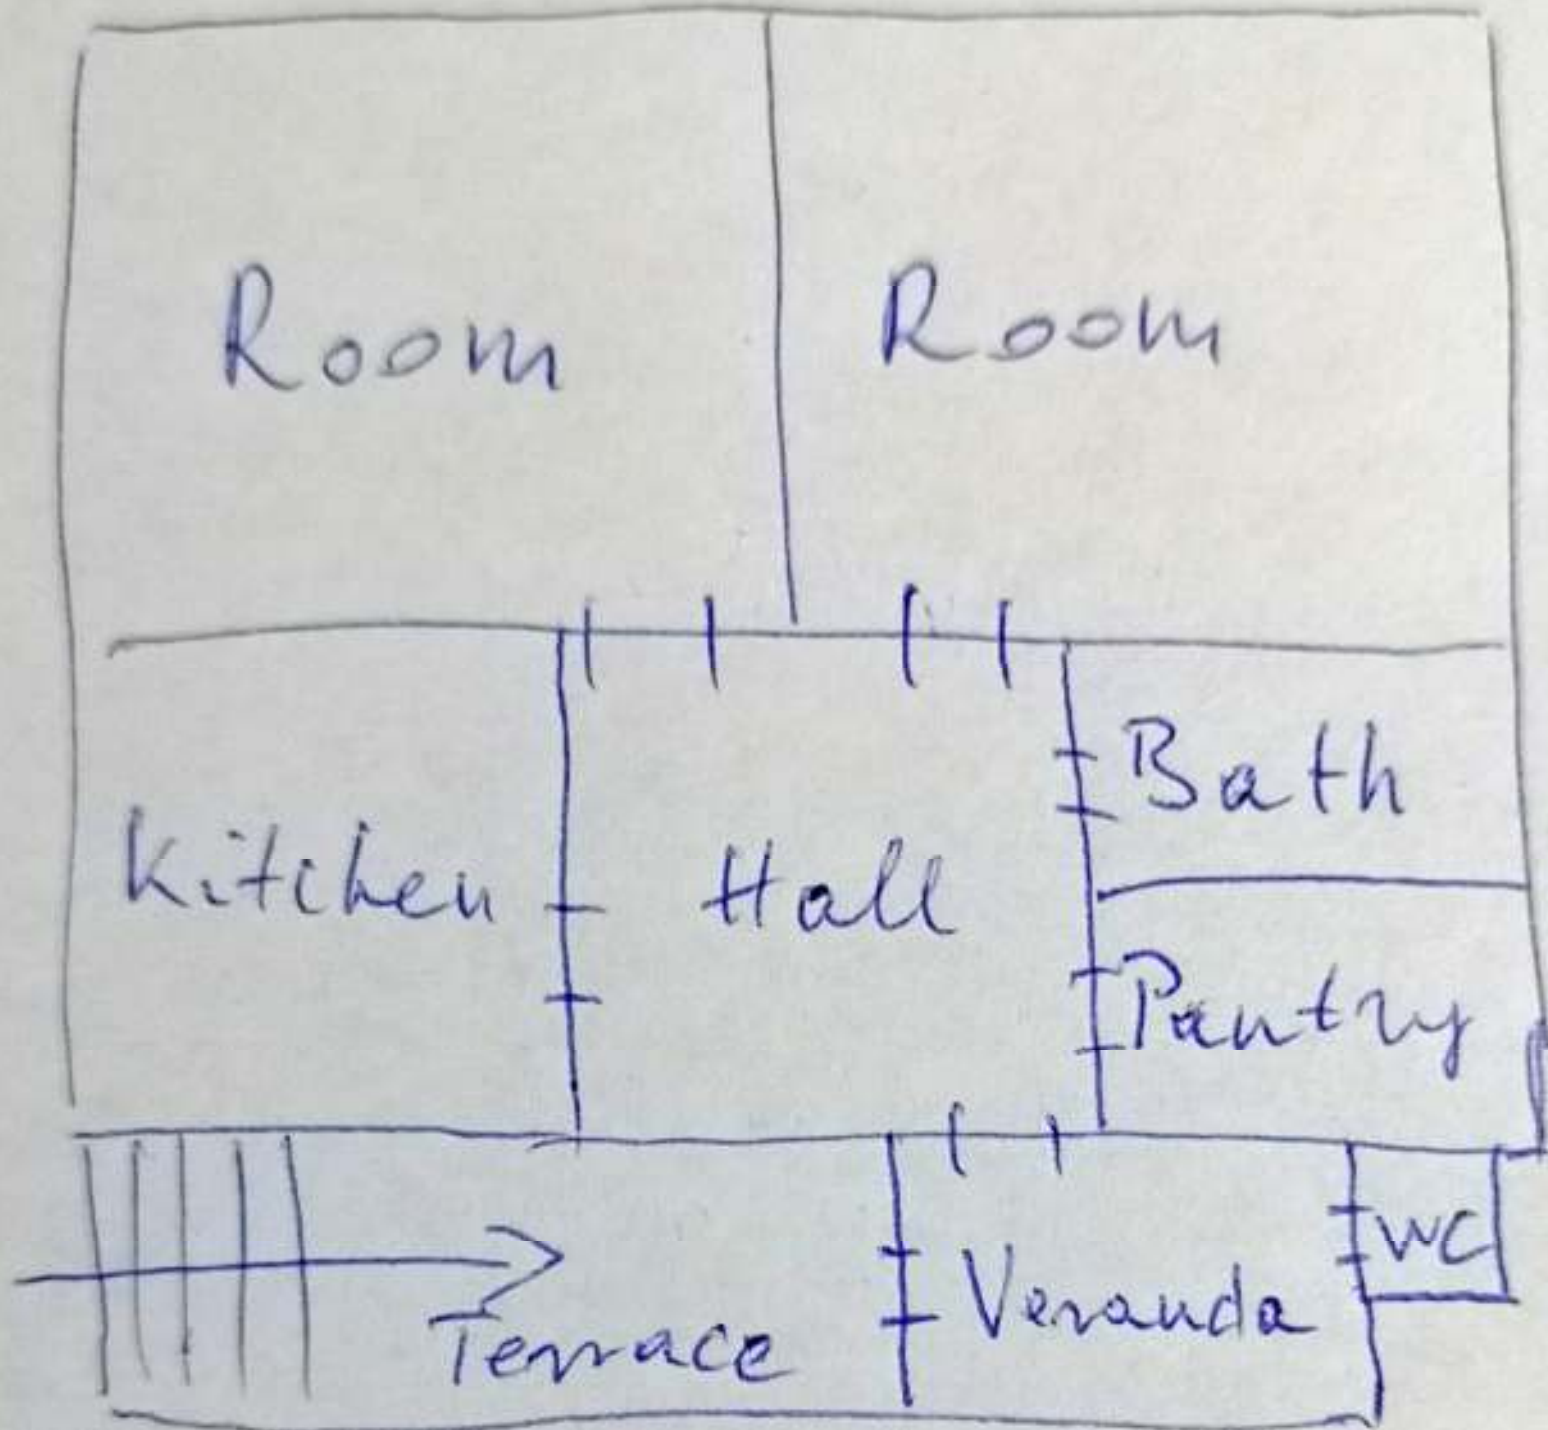 Room Room
Kitchen Hall Bath
Pantry
Terrace Veranda WC